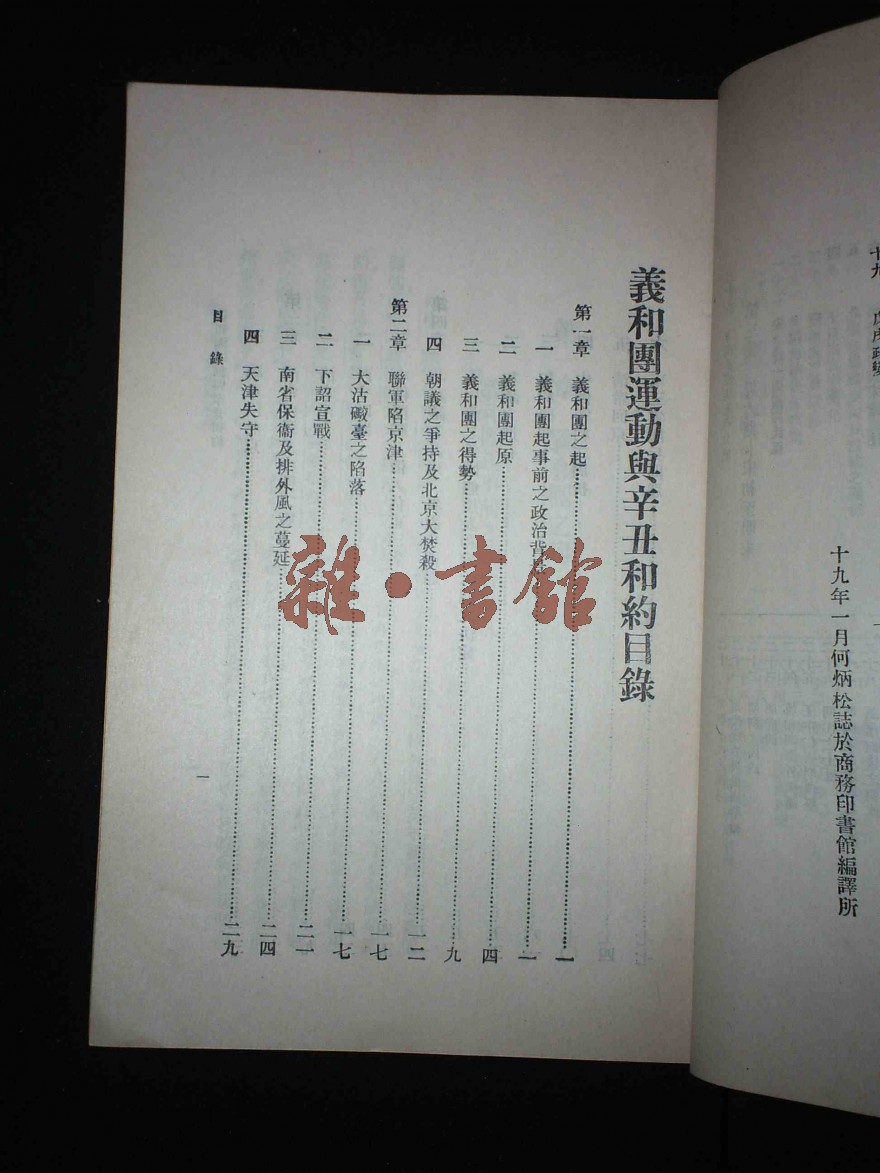 十九年一月何炳松誌於商務印書館編譯所
義和團運動與辛丑和約目錄
第一章 義和團之起 一
一 義和團起事前之政治背 一
二 義和團起原 四
三 義和團之得勢 九
四 朝議之爭持及北京大焚殺 一二
第二章 聯軍陷京津 一七
一 大沽礮臺之陷落 一七
二 下詔宣戰 二一
三 南省保衞及排外風之蔓延 二四
四 天津失守 二九
目錄
一
雜·書館